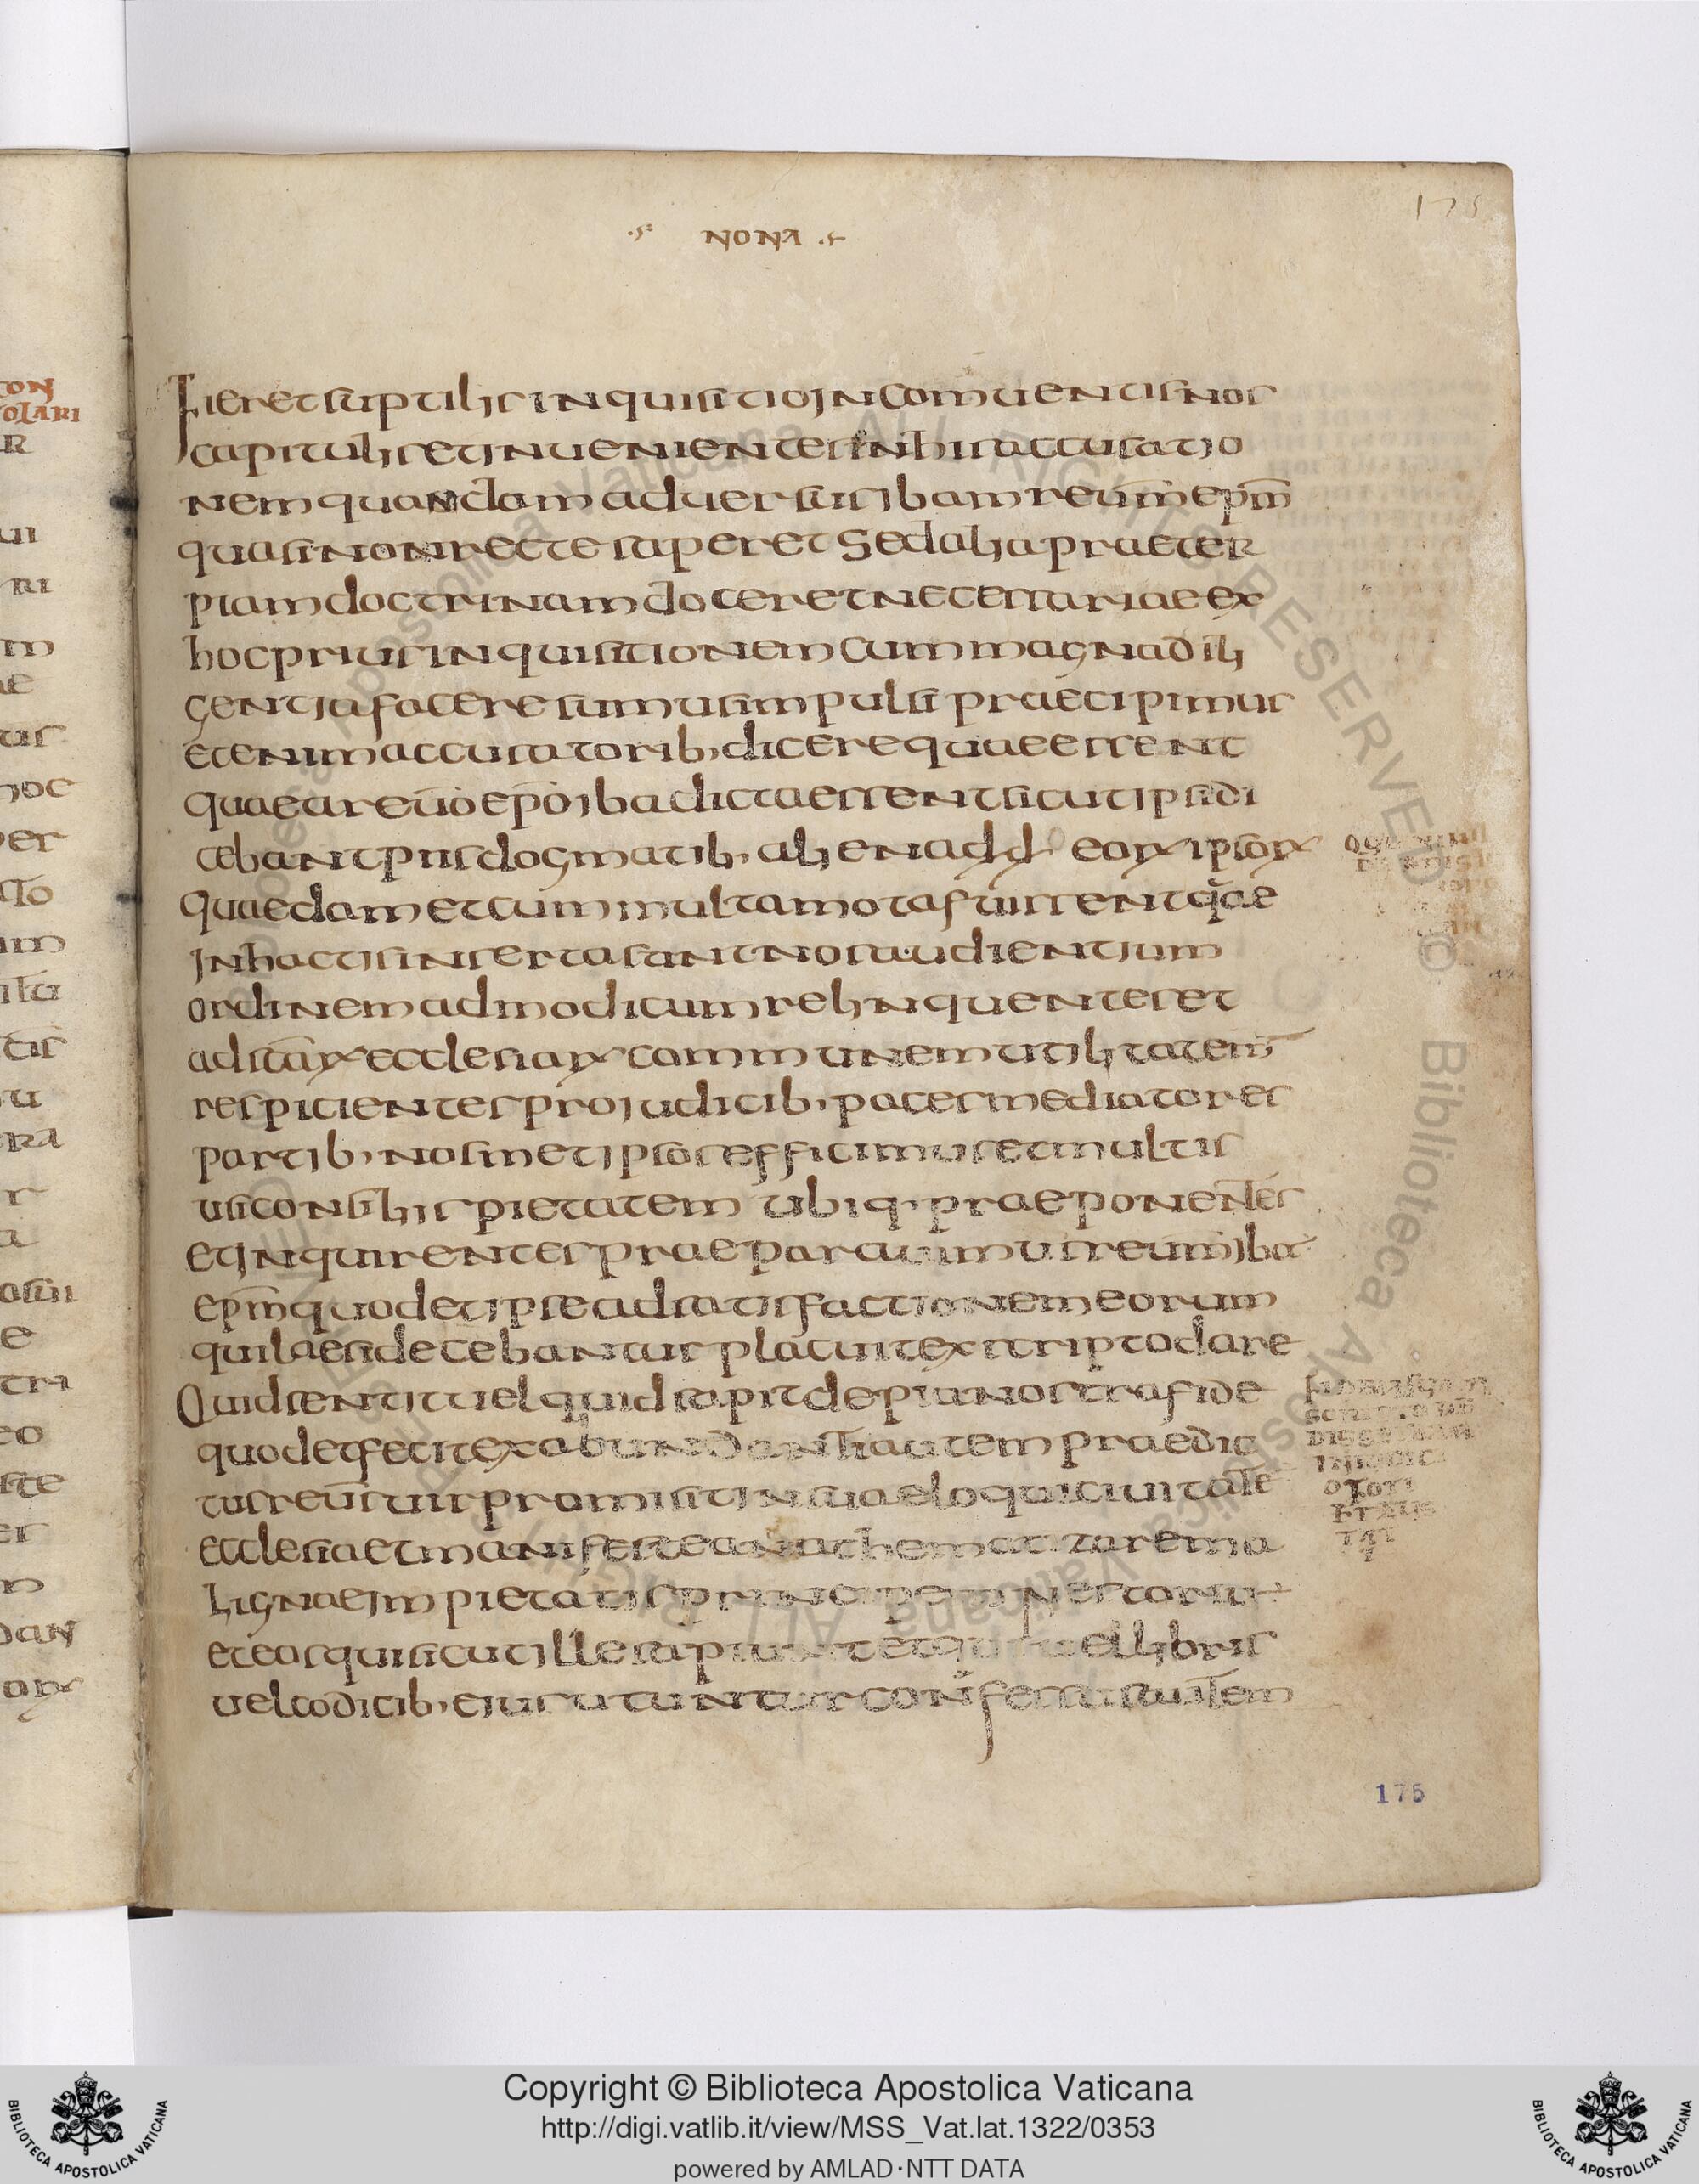 175
NONA
Fieret suptilis inquisitio in comuentis nos
capitulis et inuenientes in his accusatio
nem quandam aduersus ibam reum̄ ep̄m
quasi non recte saperet Sed alia praeter
piam doctrinam doceret necessariae ex
hoc prius inquisitionem cum magna dili
gentia facere sumus impulsi praecipimus
etenim accusatorib, dicere quae essent
quae a reuō ep̄o iba dicta essent sicut ipsi di
cebant piis dogmatib, aliena eoꝝ ipsoꝝ
Quaedam et cum multa mota fuissent q̄ae
in h actis inserta sunt nos audientium
ordinem ad modicum relinquentes et
ad sc̄aꝝ ecclesiaꝝ commūnem utilitatem
respicientes pro iudicib, paces mediatores
partib, nosmetipsos efficimus et multis
usi consiliis pietatem ubiq· praeponentes
et inquirentes praeparauimus reum̄ iba
ep̄m quod et ipse ad satisfactionem eorum
qui laesi decebantur placuit ex scripto dare
Quid sentit uel quid sapit de pia nostra fide
quod et fecit ex abundantia autem praedic
tus reūs uir promisit in sua eloqui ciuitate
ecclesia et manifeste anathematizare ma
lignae impietatis principem Nestoriū
et eos qui sicut ille sapiunt et qui uel libris
uel codicib, eius utuntur confessus autem
175
Copyright © Biblioteca Apostolica Vaticana
http://digi.vatlib.it/view/MSS_Vat.lat.1322/0353
powered by AMLAD·NTT DATA
BIBLIOTECA APOSTOLICA VATICANA
BIBLIOTECA APOSTOLICA VATICANA